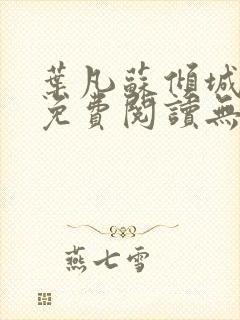 葉凡蘇傾城
免費閱讀無
燕七雪